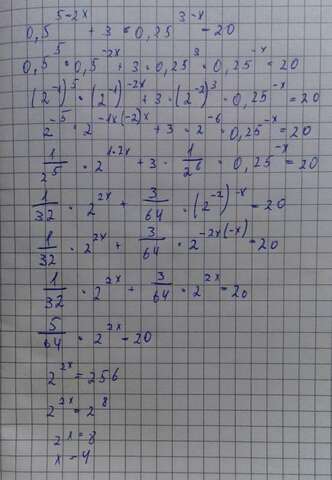 0,5^(5-2x) + 3 · 0,25^(3-x) = 20
0,5^5 · 0,5^(-2x) + 3 · 0,25^3 · 0,25^(-x) = 20
(2^(-1))^5 · (2^(-1))^(-2x) + 3 · (2^(-2))^3 · 0,25^(-x) = 20
2^(-5) · 2^(-1x(-2)x) + 3 · 2^(-6) · 0,25^(-x) = 20
1/2^5 · 2^(1·2x) + 3 · 1/2^6 · 0,25^(-x) = 20
1/32 · 2^(2x) + 3/64 · (2^(-2))^(-x) = 20
1/32 · 2^(2x) + 3/64 · 2^(-2x(-x)) = 20
1/32 · 2^(2x) + 3/64 · 2^(2x) = 20
5/64 · 2^(2x) = 20
2^(2x) = 256
2^(2x) = 2^8
2x = 8
x = 4